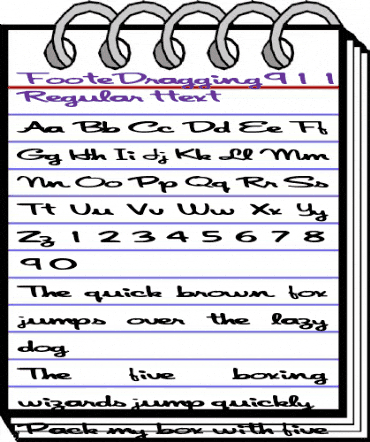 FooteDragging911
Regular ttext
Aa Bb Cc Dd Ee Ff
Gg Hh Ii Jj Kk Ll Mm
Nn Oo Pp Qq Rr Ss
Tt Uu Vv Ww Xx Yy
Zz 1 2 3 4 5 6 7 8
9 0
The quick brown fox
jumps over the lazy
dog
The five boxing
wizards jump quickly
Pack my box with five